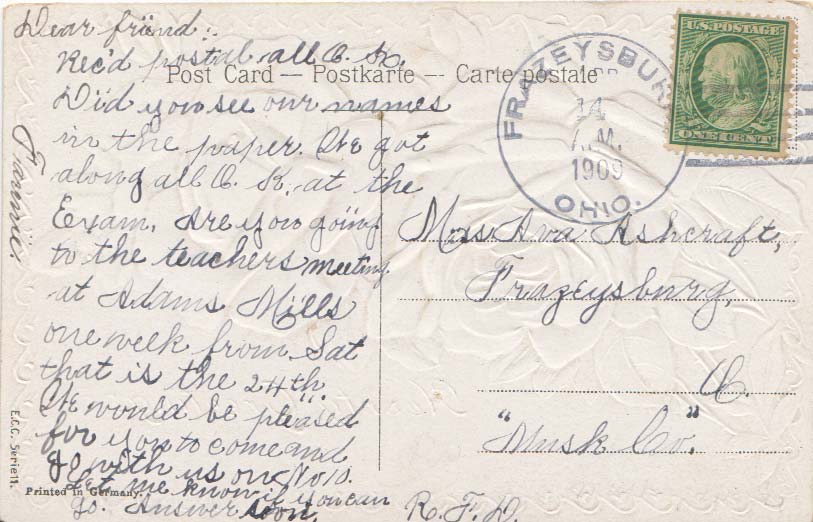 Dear friend:
Rec'd postal all O. K.
Post Card — Postkarte — Carte postale
Did you see our names
in the paper. We got
along all O. K. at the
Exam. Are you going
to the teachers meeting
at Adams Mills
one week from Sat
that is the 24th.
We would be pleased
for you to come and
go with us on No 10.
Let me know if you can
go. Answer soon.
Fannie.
E.C.C. Serie 11.
Printed in Germany.
FRAZEYSBUR
14
A.M.
1909
OHIO.
U.S. POSTAGE
ONE CENT
Mrs Ava Ashcraft,
Frazeysburg,
O.
"Musk Co."
R. F. D.